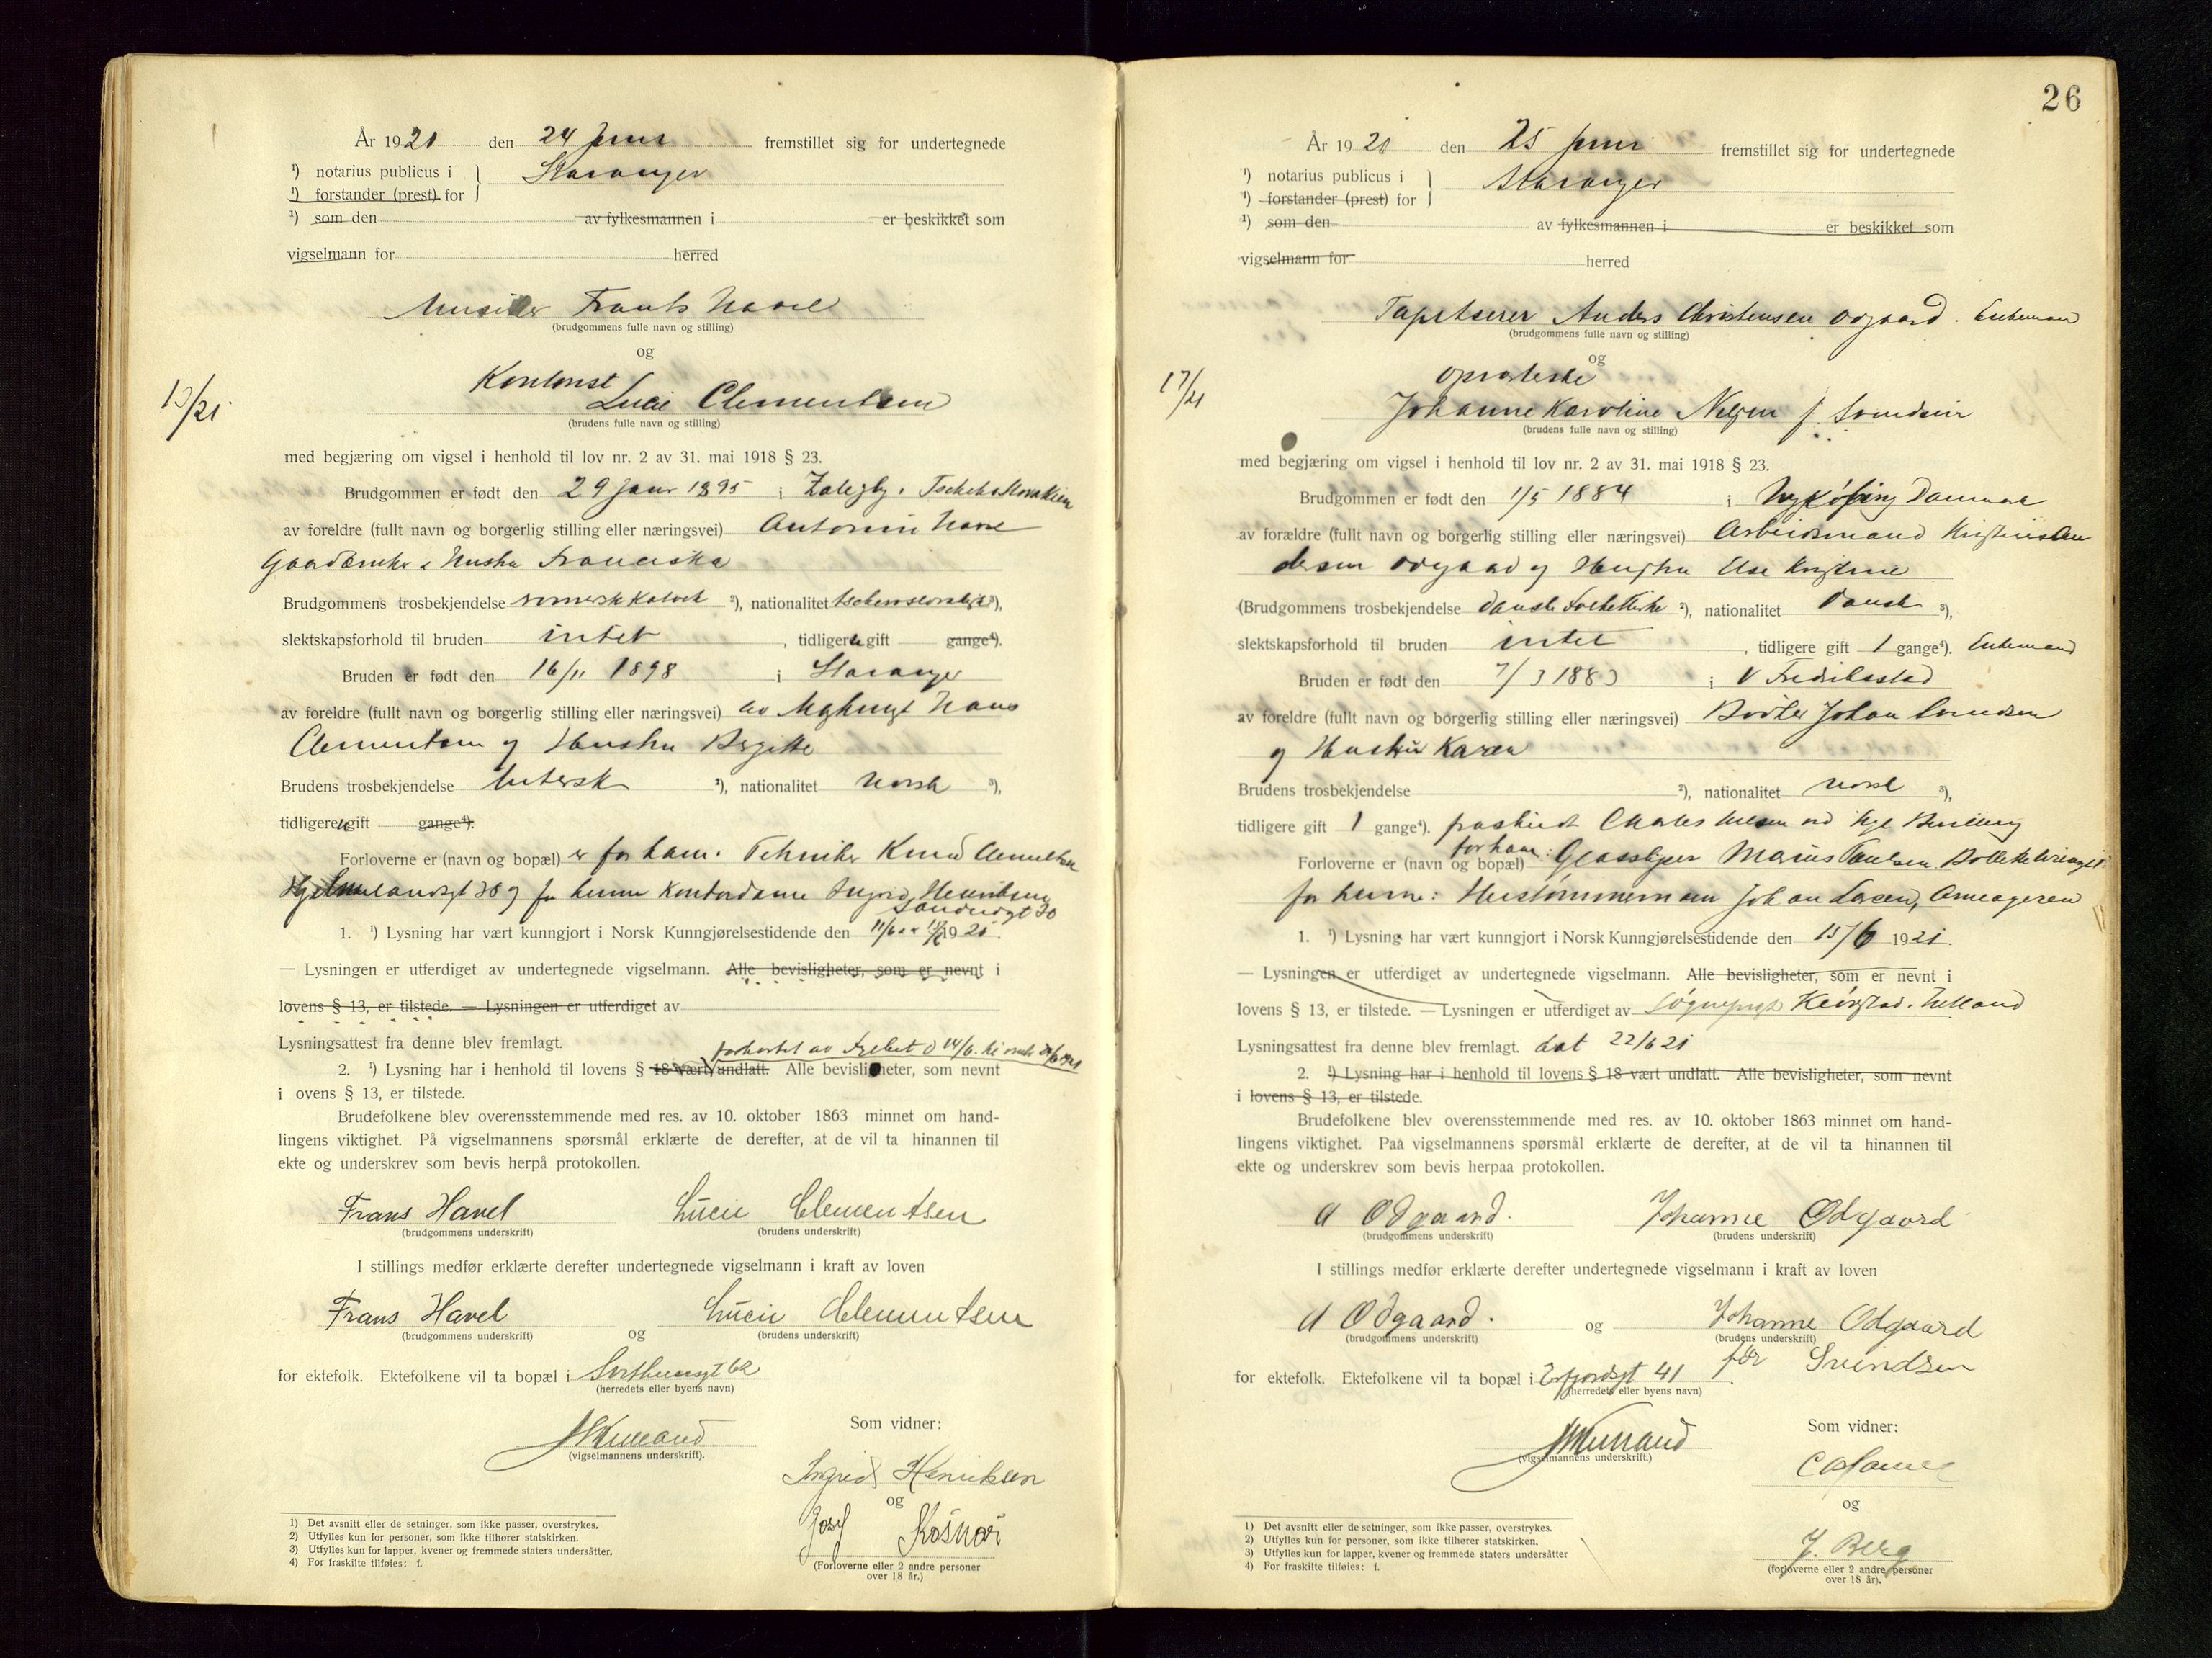 År 1921 den 24 Juni fremstillet sig for undertegnede
¹) notarius publicus i Stavanger
¹) forstander (prest) for
¹) som den av fylkesmannen i er beskikket som
vigselmann for herred
Musiker Frants Havel
(brudgommens fulle navn og stilling)
og
Kontorist
Lucie Clementsen
(brudens fulle navn og stilling)
13/21.
med begjæring om vigsel i henhold til lov nr. 2 av 31. mai 1918 § 23.
Brudgommen er født den 29 Januar 1895 i Tschekoslovakien
av foreldre (fullt navn og borgerlig stilling eller næringsvei) Antonin Havel
Gaardbruker & Hustru Franciska
Brudgommens trosbekjendelse romersk katolsk ²), nationalitet ³),
slektskapsforhold til bruden intet, tidligere gift gange⁴).
Bruden er født den 16/11 1898 i Stavanger
av foreldre (fullt navn og borgerlig stilling eller næringsvei) av Hans
Clementsen og Hustru Birgitte
Brudens trosbekjendelse lutersk ²), nationalitet norsk ³),
tidligere gift gange⁴).
Forloverne er (navn og bopæl) er for ham: Tekniker Knud Clementsen
Hjelmelandsgt 36 og for henne Kontordame Ingrid Henriksen
30
1. ¹) Lysning har vært kunngjort i Norsk Kunngjørelsestidende den 11/6 1921.
— Lysningen er utferdiget av undertegnede vigselmann. Alle bevisligheter, som er nevnt i
lovens § 13, er tilstede. — Lysningen er utferdiget av
Lysningsattest fra denne blev fremlagt.
forkortet av 14/6
2. ¹) Lysning har i henhold til lovens § 18 vært undlatt. Alle bevisligheter, som nevnt
i ovens § 13, er tilstede.
Brudefolkene blev overensstemmende med res. av 10. oktober 1863 minnet om hand-
lingens viktighet. På vigselmannens spørsmål erklærte de derefter, at de vil ta hinannen til
ekte og underskrev som bevis herpå protokollen.
Frans Havel Lucie Clementsen
(brudgommens underskrift) (brudens underskrift)
I stillings medfør erklærte derefter undertegnede vigselmann i kraft av loven
Frans Havel og Lucie Clementsen
(brudgommens underskrift) (brudens underskrift)
for ektefolk. Ektefolkene vil ta bopæl i 62
(herredets eller byens navn)
(vigselmannens underskrift).
Som vidner:
Ingrid Henriksen
og
Josef Košnař
(Forloverne eller 2 andre personer
over 18 år.)
1) Det avsnitt eller de setninger, som ikke passer, overstrykes.
2) Utfylles kun for personer, som ikke tilhører statskirken.
3) Utfylles kun for lapper, kvener og fremmede staters undersåtter.
4) For fraskilte tilføles: f.
26
År 1921 den 25 Juni fremstillet sig for undertegnede
¹) notarius publicus i Stavanger
¹) forstander (prest) for
¹) som den av fylkesmannen i er beskikket som
vigselmann for herred
Tapetserer Anders Christensen Odgaard. Enkemand
(brudgommens fulle navn og stilling)
og
Johanne Karoline Nilsen f. Svendsen
(brudens fulle navn og stilling)
17/21
med begjæring om vigsel i henhold til lov nr. 2 av 31. mai 1918 § 23.
Brudgommen er født den 1/5 1884 i Nykøbing Danmark
av forældre (fullt navn og borgerlig stilling eller næringsvei) Arbeidsmand Kristen An
dersen Odgaard og Hustru Else Kristine
(Brudgommens trosbekjendelse danske Folkekirke ²), nationalitet dansk ³),
slektskapsforhold til bruden intet, tidligere gift 1 gange⁴). Enkemand
Bruden er født den 7/3 1883 i V Fredrikstad
av foreldre (fullt navn og borgerlig stilling eller næringsvei) Johan Svendsen
og Hustru Karen
Brudens trosbekjendelse ²), nationalitet norsk ³),
tidligere gift 1 gange⁴). fraskilt Charles Nilsen ved kgl Bevilling
Forloverne er (navn og bopæl) for ham: Marius Paulsen
for henne: Hustømmermann Johan Larsen,
1. ¹) Lysning har vært kunngjort i Norsk Kunngjørelsestidende den 15/6 1921.
— Lysningen er utferdiget av undertegnede vigselmann. Alle bevisligheter, som er nevnt i
lovens § 13, er tilstede. — Lysningen er utferdiget av
Lysningsattest fra denne blev fremlagt. dat 22/6 21
2. ¹) Lysning har i henhold til lovens § 18 vært undlatt. Alle bevisligheter, som nevnt
i lovens § 13, er tilstede.
Brudefolkene blev overensstemmende med res. av 10. oktober 1863 minnet om hand-
lingens viktighet. Paa vigselmannens spørsmål erklærte de derefter, at de vil ta hinannen til
ekte og underskrev som bevis herpaa protokollen.
A Odgaard. Johanne Odgaard
(brudgommens underskrift) (brudens underskrift)
I stillings medfør erklærte derefter undertegnede vigselmann i kraft av loven
A Odgaard. og Johanne Odgaard
(brudgommens underskrift) (brudens underskrift)
før Svendsen
for ektefolk. Ektefolkene vil ta bopæl i Erfjordsgt 41
(herredets eller byens navn)
(vigselmannens underskrift.)
Som vidner:
og
J. Berg
(forloverne eller 2 andre personer
over 18 år).
1) Det avsnitt eller de setninger, som ikke passer, overstrykes.
2) Utfylles kun for personer, som ikke tilhører statskirken.
3) Utfylles kun for lapper, kvener og fremmede staters undersåtter
4) For fraskilte tilføles: f.